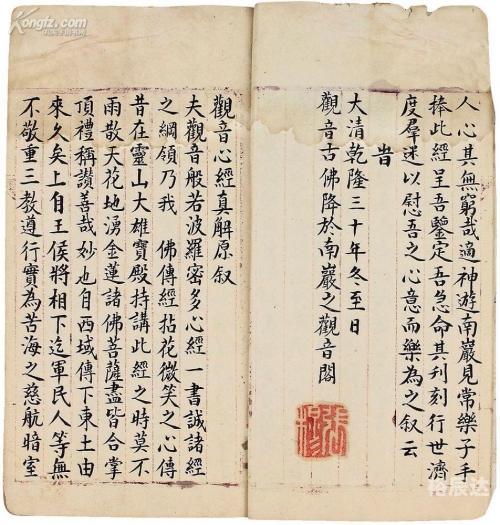 Kongfz.com
人心其無窮哉適神遊南巖見常樂子手
捧此經呈吾鑒定吾急命其利刻行世濟
度羣迷以慰吾之心意而樂為之叙云
旹
大清乾隆三十年冬至日
觀音古佛降於南巖之觀音閣
觀音心經真解原叙
夫觀音般若波羅密多心經一書誠諸經
之綱領乃我 佛傳經拈花微笑之心傳
昔在靈山大雄寶殿持講此經之時莫不
雨散天花地湧金蓮諸佛菩薩盡皆合掌
頂禮稱讚善哉妙也自西域傳下東土由
來久矣上自王侯將相下迄軍民人等無
不敬重三教遵行實為苦海之慈航暗室
裕辰达